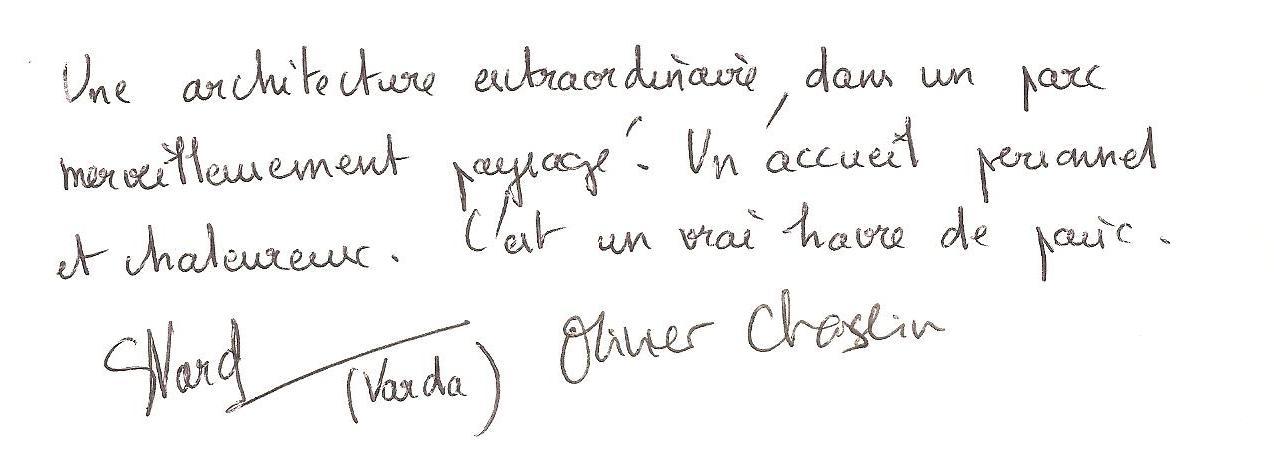 Une architecture extraordinaire, dans un parc
merveilleusement paysagé. Un accueil personnel
et chaleureux. C'est un vrai havre de paix.
(Varda) Olivier Chaslin